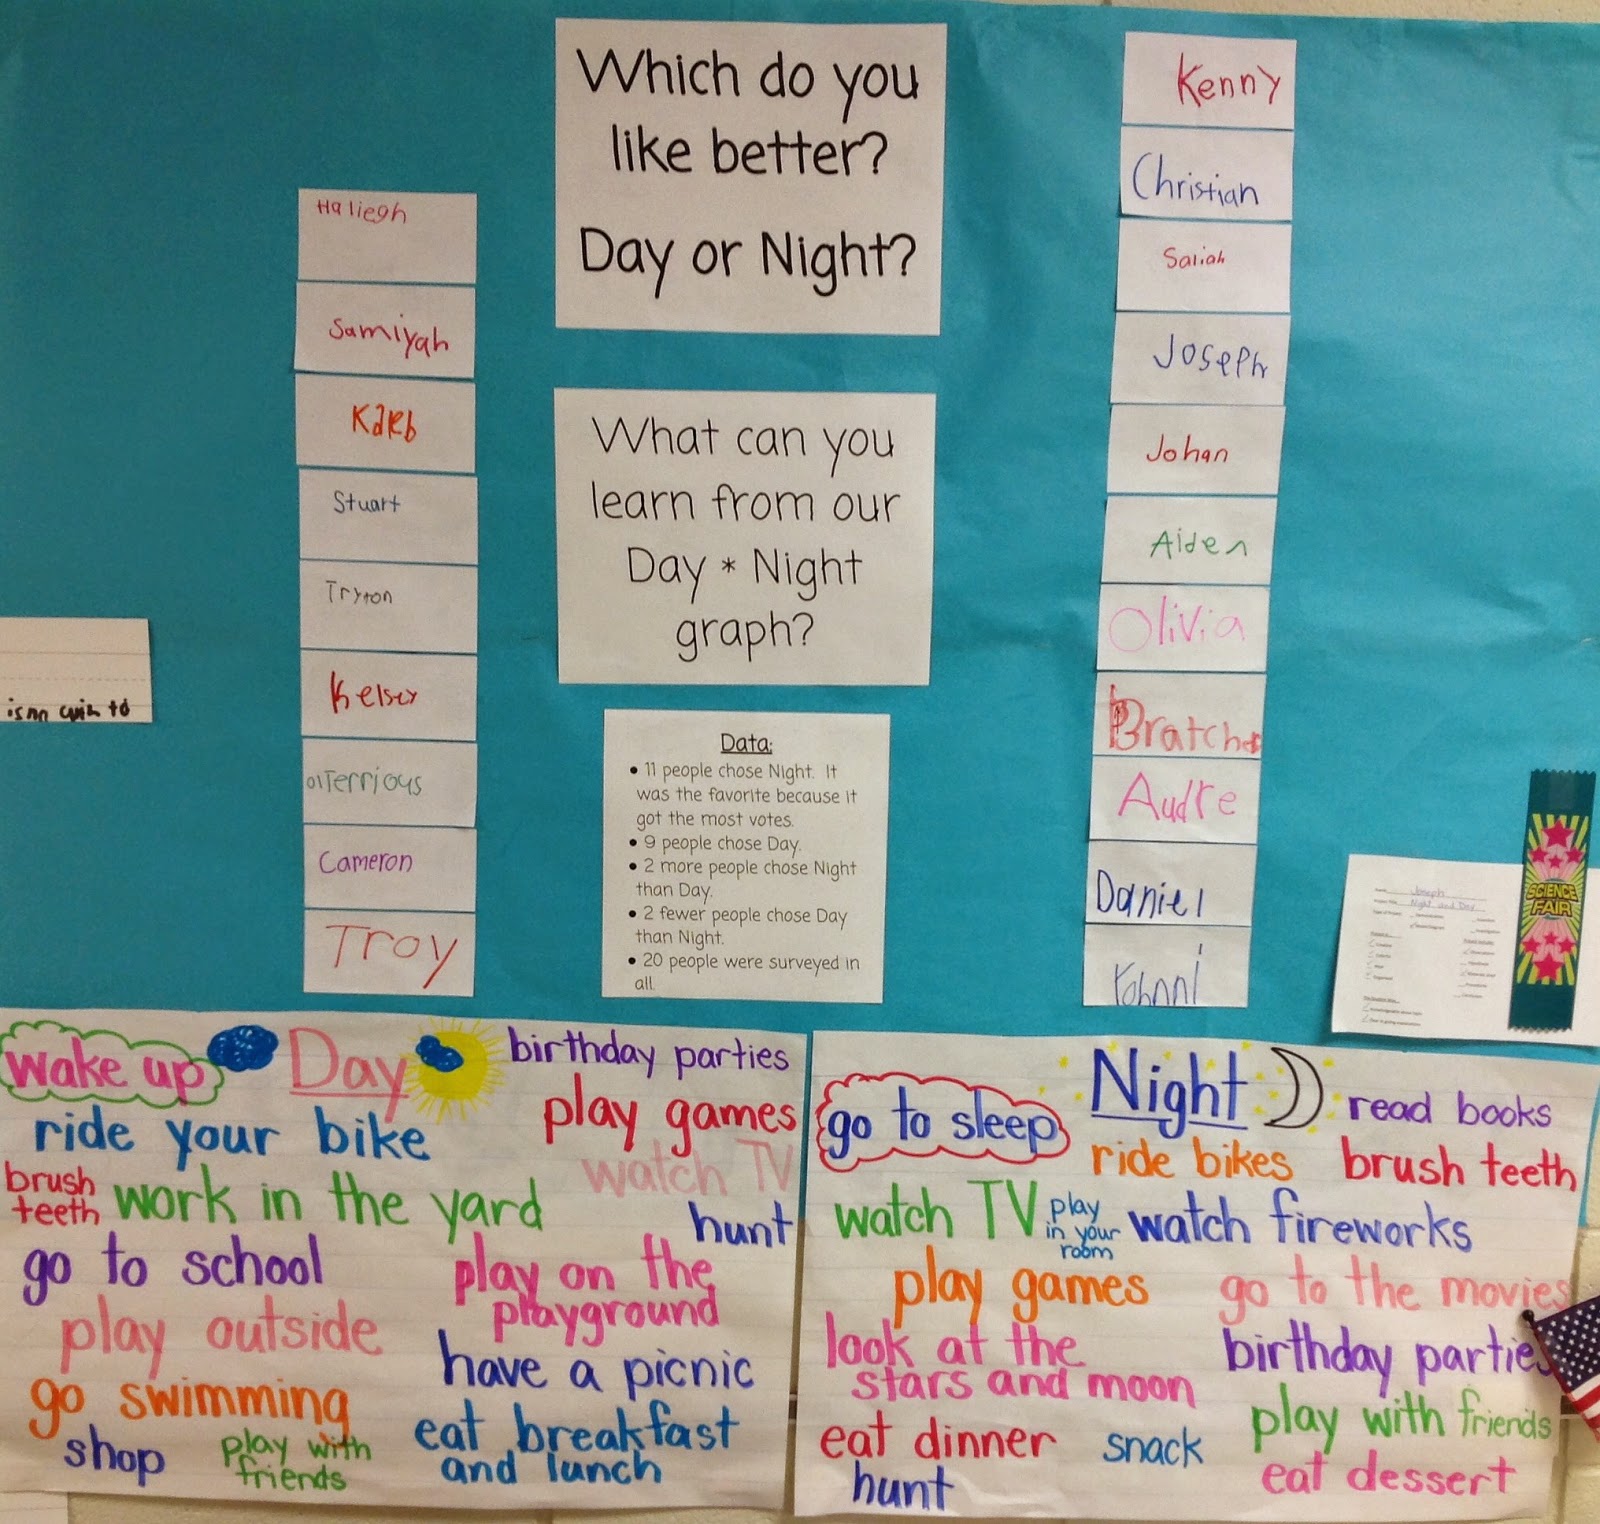 Which do you
like better?
Day or Night?
What can you
learn from our
Day * Night
graph?
Data:
• 11 people chose Night. It
was the favorite because it
got the most votes.
• 9 people chose Day.
• 2 more people chose Night
than Day.
• 2 fewer people chose Day
than Night.
• 20 people were surveyed in
all.
Haliegh
Samiyah
Kaleb
Stuart
Tryton
Kelsey
Terrious
Cameron
Troy
Kenny
Christian
Saliah
Joseph
Johan
Aiden
Olivia
Bratcher
Audre
Daniel
to
Joseph
Night and Day
SCIENCE
FAIR
wake up
Day
birthday parties
ride your bike
play games
watch TV
brush
teeth
work in the yard
hunt
go to school
play on the
playground
play outside
have a picnic
go swimming
eat breakfast
and lunch
shop
play with
friends
go to sleep
Night
read books
ride bikes
brush teeth
watch TV
play
in your
room
watch fireworks
play games
go to the movies
look at the
stars and moon
birthday parties
eat dinner
snack
play with friends
hunt
eat dessert